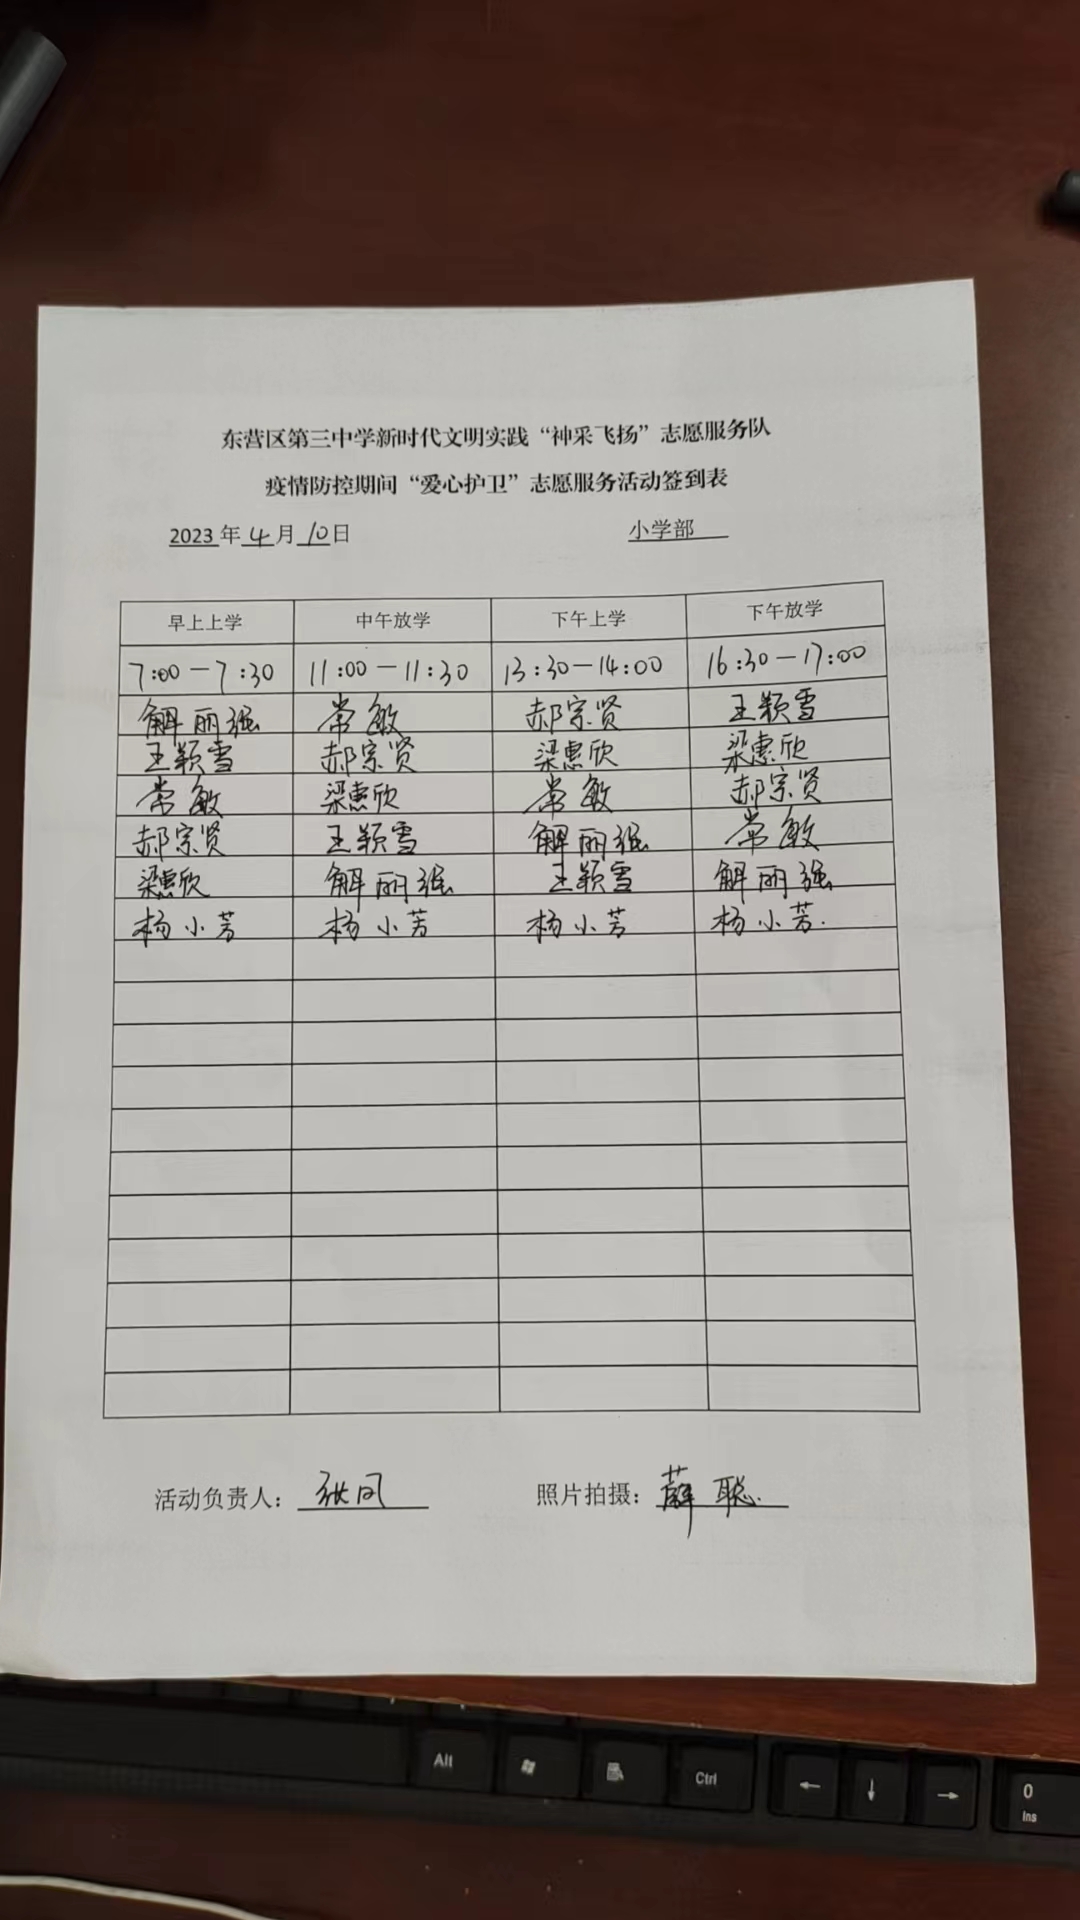 东营区第三中学新时代文明实践“神采飞扬”志愿服务队
疫情防控期间“爱心护卫”志愿服务活动签到表
2023年4月10日 小学部
早上上学 中午放学 下午上学 下午放学
7:00-7:30 11:00-11:30 13:30-14:00 16:30-17:00
解丽强 常敏 郝宗贤 王颖雪
王颖雪 郝宗贤 梁惠欣 梁惠欣
常敏 梁惠欣 常敏 郝宗贤
郝宗贤 王颖雪 解丽强 常敏
梁惠欣 解丽强 王颖雪 解丽强
杨小芳 杨小芳 杨小芳 杨小芳.
活动负责人： 照片拍摄：薛聪.
Alt Ctrl ← ↓ → 0
Ins